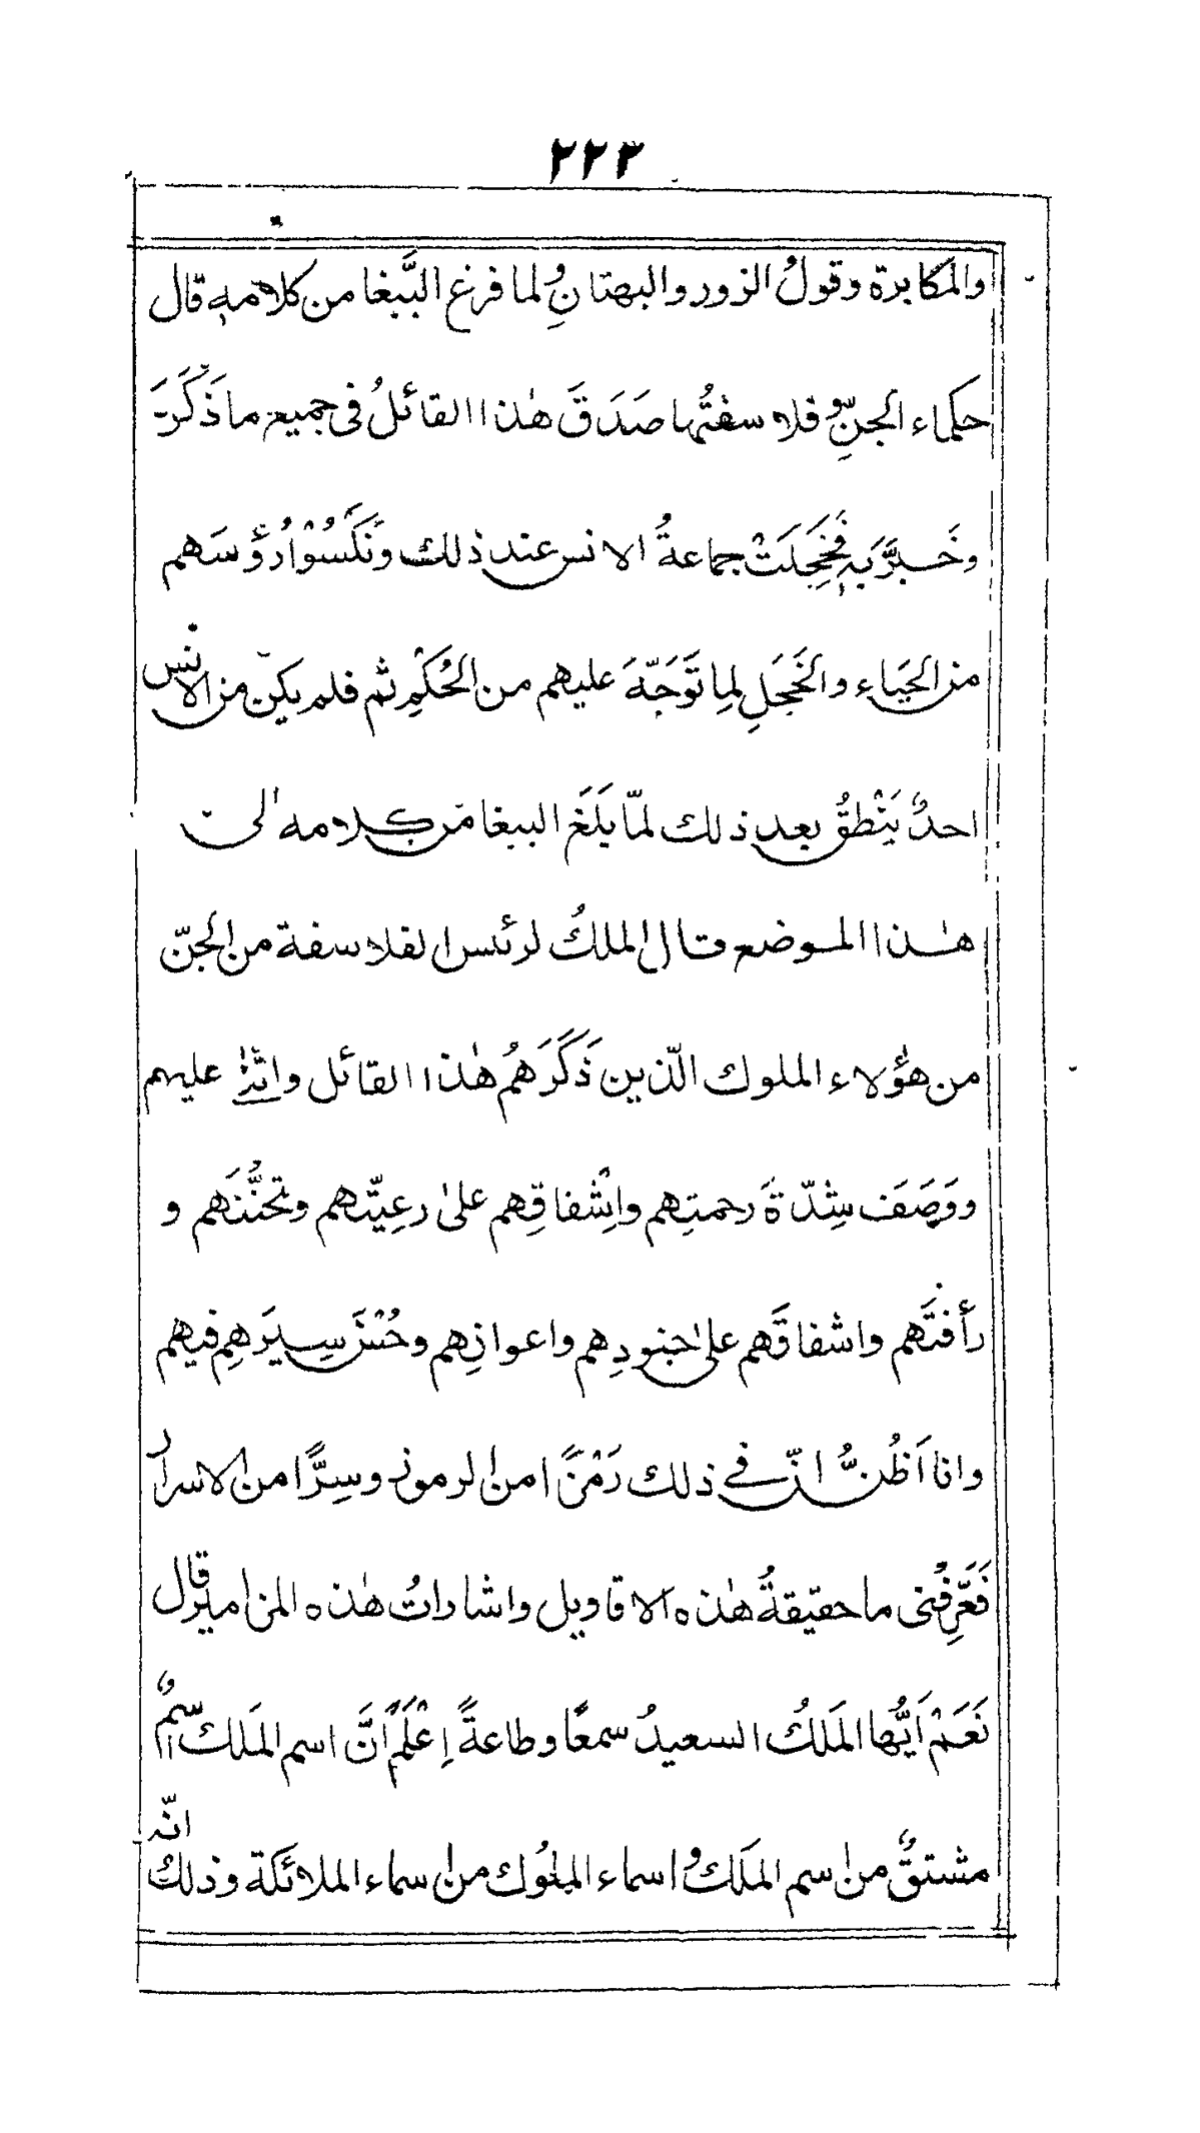 ٢٢٣
والمكابرة وقولُ الزور والبهتانِ وُلما فرغ الببَّغا من كلامهٖ قال
حكماء الجنِّ وفلاسفتُها صَدَقَ هٰذا القائلُ فى جميع ما ذَكَرَ
وخَبَّرَ بَهٖ فَخَجِلَتْ جماعةُ الانس عند ذلك ونَكَسُوْا رُؤُسَهم
من الحَياء والخَجَلِ لِما تَوَجَّهَ عليهم من الحُكْمِ ثم فلم يكن من الانس
احدٌ يَنْطِقُ بعد ذلك لمّا بَلَغَ الببغا من كلامه الى
هٰذا الموضع قال الملكُ لرئس الفلاسفة من الجنّ
من هٰؤلاء الملوك الّذين ذَكَرَهُم هٰذا القائل واثنٰى عليهم
ووَصَفَ شِدّةَ رحمتِهم واِشْفاقِهم علىٰ رعِيّتهم وتَحَنُّنَهم و
رأفتَهم واشفاقَهم علىٰ جنودِهم واعوانِهم وحُسْنَ سِيَرِهِم فيهم
وانا اَظُنُّ انّ فے ذلك رَمْزًا من الرموز وسِرًّا من الاسرار
فَعَرِّفْنى ما حقيقةُ هٰذه الاقاويل واشاراتُ هٰذه المزامير قال
نَعَمْ اَيُّها المَلكُ السعيدُ سمعًا وطاعةً اِعْلَمْ اَنَّ اسم المَلك اسمٌ
مشتقٌ من اسم المَلَك واسماء الملُوك من اسماء الملائكة وذلك انّه